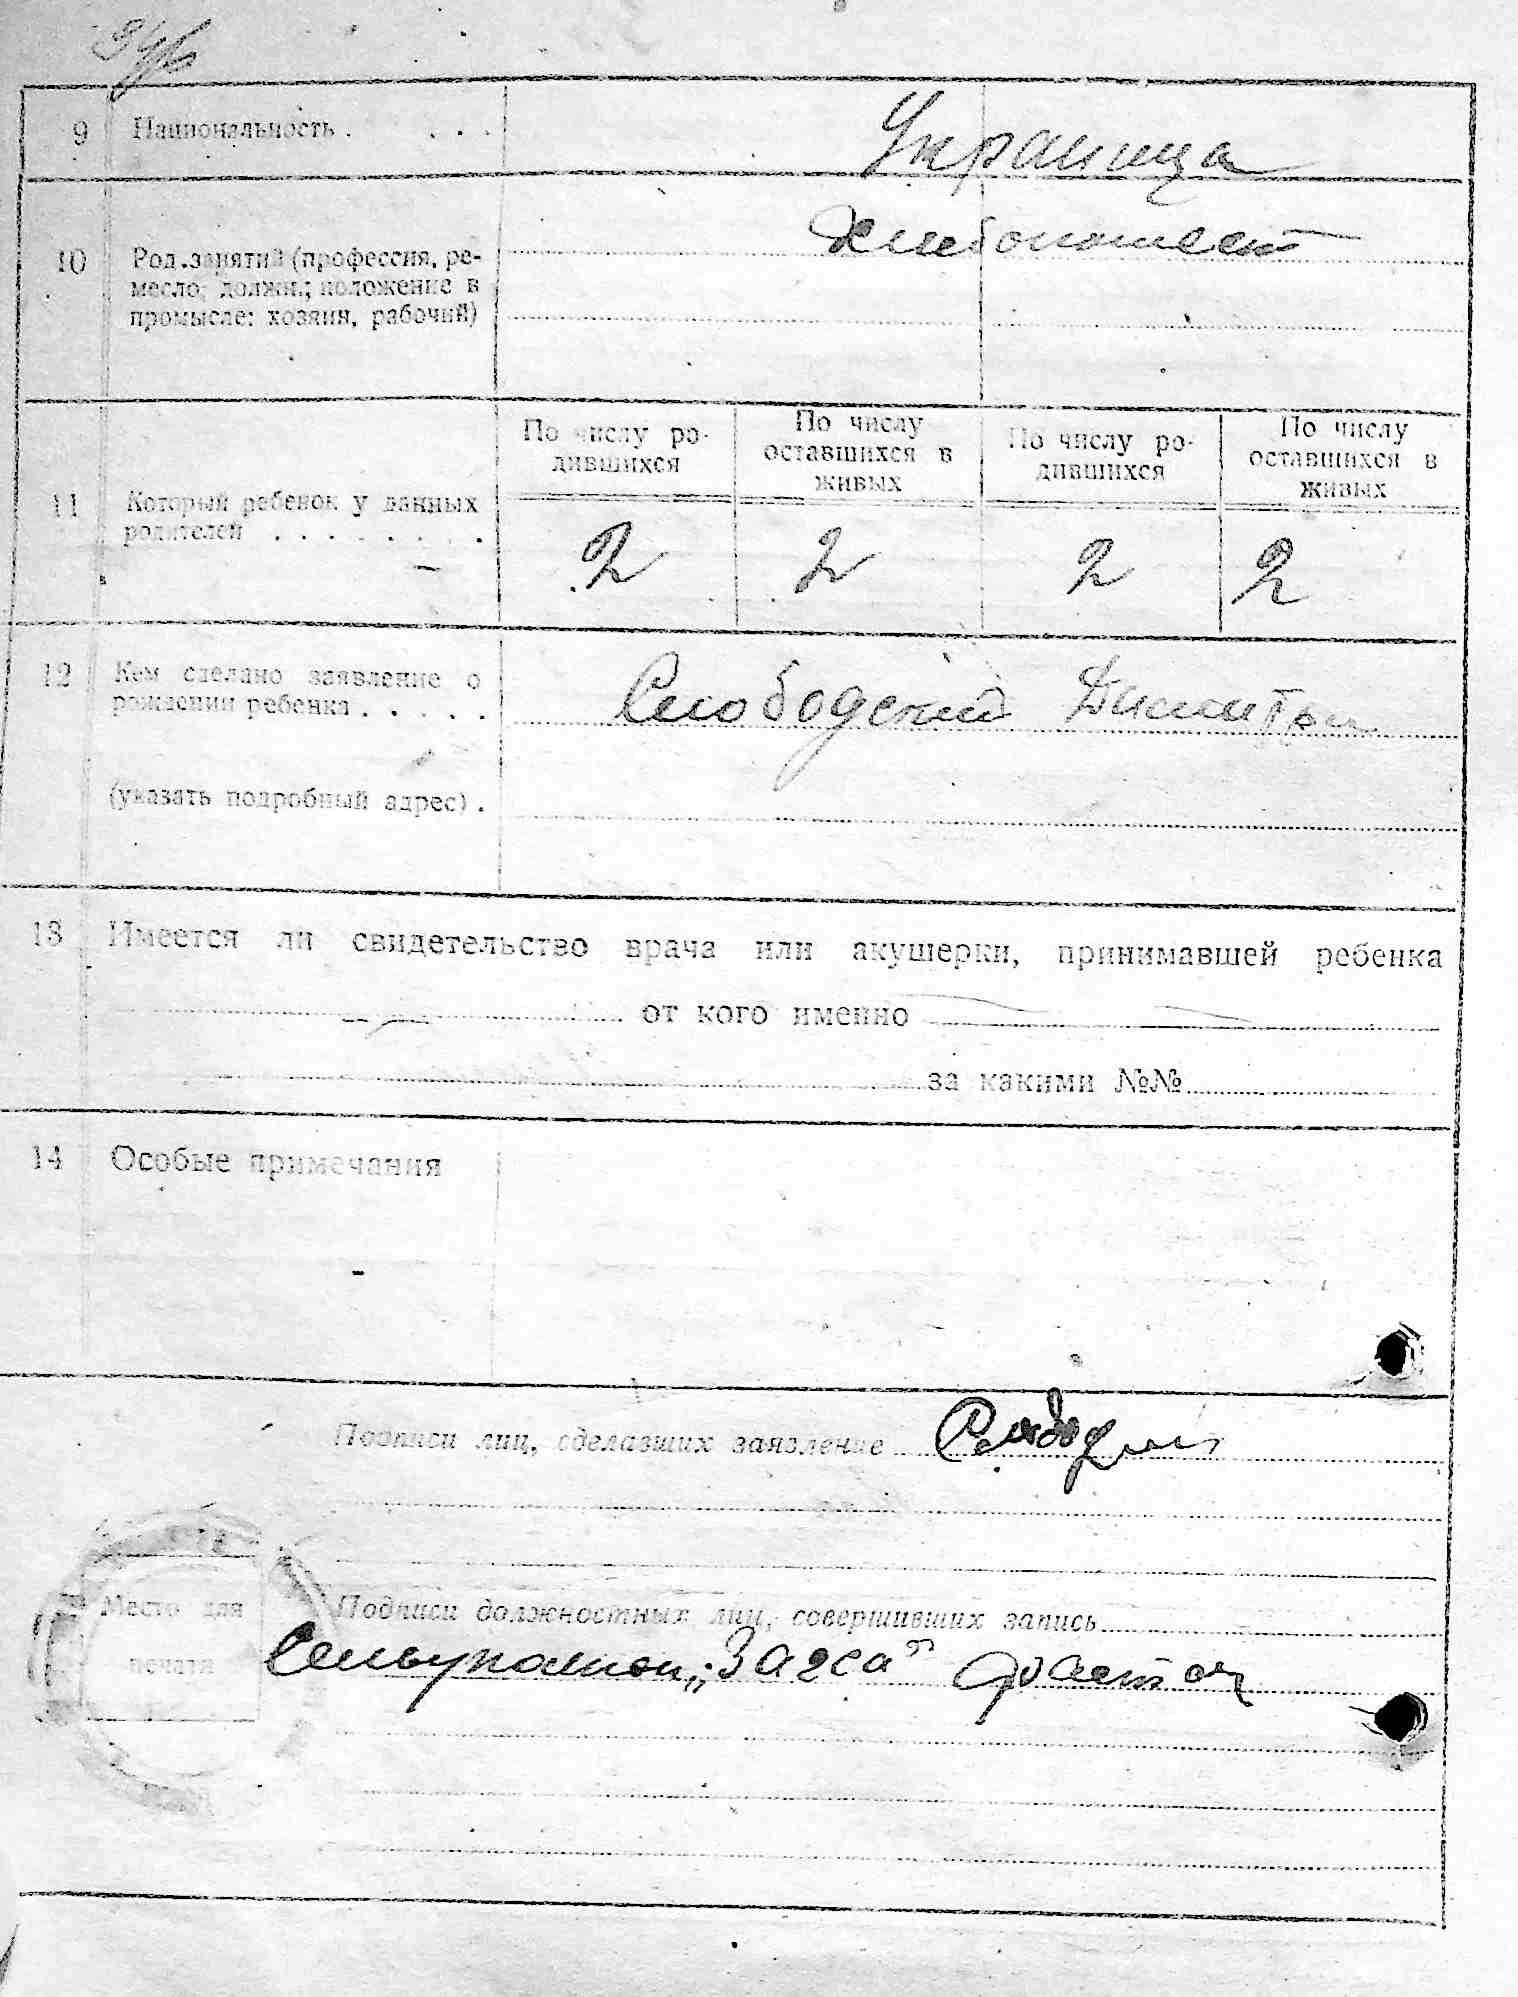 9 Национальность . . . .
Украинца
10 Род.занятий (профессия, ре-
месло, должн.; положение в
промысле: хозяин, рабочий)
11 Который ребенок у данных
родителей . . . . . . . .
По числу ро-
дившихся
По числу
оставшихся в
живых
По числу ро-
дившихся
По числу
оставшихся в
живых
2 2 2 2
12 Кем сделано заявление о
рождении ребенка . . . . .
Слободский Димитри
(указать подробный адрес) .
13 Имеется ли свидетельство врача или акушерки, принимавшей ребенка
от кого именно
за какими №№
14 Особые примечания
Подписи лиц, сделавших заявление
Место для
печати
Подписи должностных лиц, совершивших запись
„Загса"